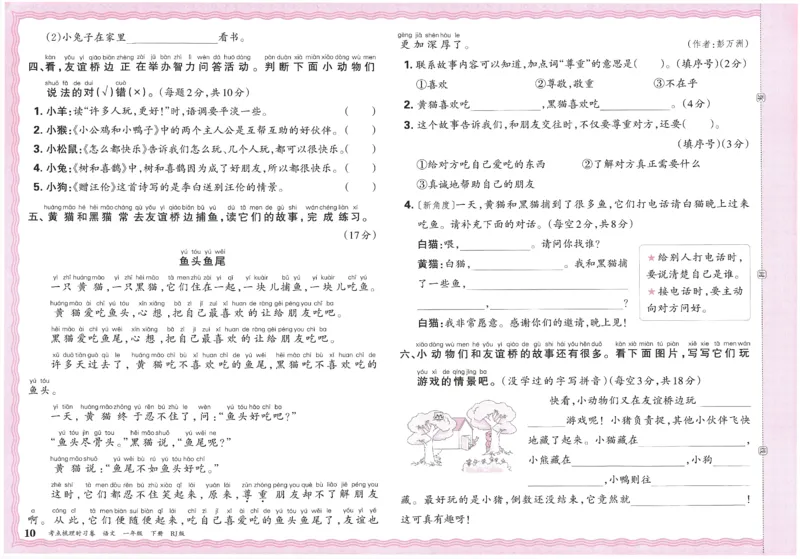 (2)小兔子在家里________________看书。
kàn yǒu yì qiáo biān zhèng zài jǔ bàn zhì lì wèn dá huó dòng pàn duàn xià miàn xiǎo dòng wù men
四、看,友谊桥边 正 在举办智力问答活动。判断下面小动物们
shuō fǎ de duì cuò
说法的对(√)错(×)。(每题2分,共10分)
1. 小羊:读“许多人玩,更好!”时,语调要平淡一些。 ( )
2. 小猴:《小公鸡和小鸭子》中的两个主人公是互帮互助的好伙伴。 ( )
3. 小松鼠:《怎么都快乐》告诉我们怎么玩、几个人玩,都可以很快乐。( )
4. 小兔:《树和喜鹊》中,树和喜鹊因为成了好朋友,所以都很快乐。 ( )
5. 小狗:《赠汪伦》这首诗写的是李白送别汪伦的情景。 ( )
huáng māo hé hēi māo cháng qù yǒu yì qiáo biān bǔ yú dú tā men de gù shi wán chéng liàn xí
五、黄 猫和黑猫 常 去友谊桥边捕鱼,读它们的故事,完 成 练习。
(17分)
yú tóu yú wěi
鱼头鱼尾
yì zhī huáng māo yì zhī hēi māo tā men zhù zài yì qǐ yí kuàir bǔ yú yí kuàir chī yú
一只 黄 猫,一只黑猫,它们住在一起,一块儿捕鱼,一块儿吃鱼。
huáng māo ài chī yú tóu xīn xiǎng bǎ zì jǐ zuì xǐ huan de ràng gěi péng you chī ba
黄 猫爱吃鱼头,心 想,把自己最喜欢的让给朋友吃吧。
hēi māo ài chī yú wěi xīn xiǎng bǎ zì jǐ zuì xǐ huan de ràng gěi péng you chī ba
黑猫爱吃鱼尾,心 想,把自己最喜欢的让给朋友吃吧。
xǔ duō tiān guò qù le huáng māo chī bù xǐ huan chī de yú wěi hēi māo chī bù xǐ huan chī de
许多天过去了, 黄 猫吃不喜欢吃的鱼尾,黑猫吃不喜欢吃的
yú tóu
鱼头。
yì tiān huáng māo zhōng yú rěn bú zhù le wèn yú tóu hǎo chī ba
一天,黄 猫 终 于忍不住了,问:“鱼头好吃吧?”
yú tóu jìn gǔ tou hēi māo shuō yú wěi ne
“鱼头尽骨头。”黑猫说,“鱼尾呢?”
huáng māo shuō yú wěi bù rú yú tóu hǎo chī
黄 猫 说:“鱼尾不如鱼头好吃。”
zhè shí tā men dōu rěn bú zhù xiào qǐ lái yuán lái zūn zhòng péng you què bù liǎo jiě péng you
这时,它们都忍不住笑起来,原来,尊 重 朋友却不了解朋友
a cóng cǐ tā men biàn suí biàn qǐ lái chī zì jǐ ài chī de yú tóu yú wěi le yǒu yì yě
啊。从此,它们便随便起来,吃自己喜爱吃的鱼头鱼尾了,友谊也
10 考点梳理时习卷 语文 一年级 下册 RJ版
gèng jiā shēn hòu le
更加深厚了。
(作者:彭万洲)
1. 联系故事内容可以知道,加点词“尊重”的意思是( )。(填序号)(2分)
①喜欢 ②尊敬,敬重 ③不在乎
2. 黄猫喜欢吃____________,黑猫喜欢吃____________。(4分)
3. 这个故事告诉我们,和朋友交往时,不仅要尊重对方,还要( )。
(填序号)(3分)
①给对方吃自己爱吃的东西 ②了解对方真正需要什么
③真诚地帮助自己的朋友
4. [新角度]一天,黄猫和黑猫捕到了很多鱼,它们打电话请白猫晚上过来
吃鱼。请补充下面的对话。(每空2分,共8分)
白猫:喂,____________。请问你找谁?
黄猫:白猫,________________。我和黑猫捕
了一些鱼,____________________________
____________,______________________?
白猫:我非常愿意。感谢你们的邀请,晚上见!
★给别人打电话时,
要说清楚自己是谁。
★接电话时,要主动
向对方问好。
xiǎo dòng wù men hé yǒu yì qiáo de gù shi hái yǒu hěn duō kàn xià miàn tú piàn xiě xie tā men wán
六、小动物们和友谊桥的故事还有很多。看下面图片,写写它们玩
yóu xì de qíng jǐng ba
游戏的情景吧。(没学过的字写拼音)(每空3分,共18分)
快看,小动物们又在友谊桥边玩________
________游戏呢!小猪负责捉,其他小伙伴飞快
地藏了起来。小猫藏在____________________,
小熊藏在________________,小狗________
______________,小鸭则往________________
藏。最好玩的是小猪,倒数还没结束,它竟然就____________________!
这可真有趣呀!